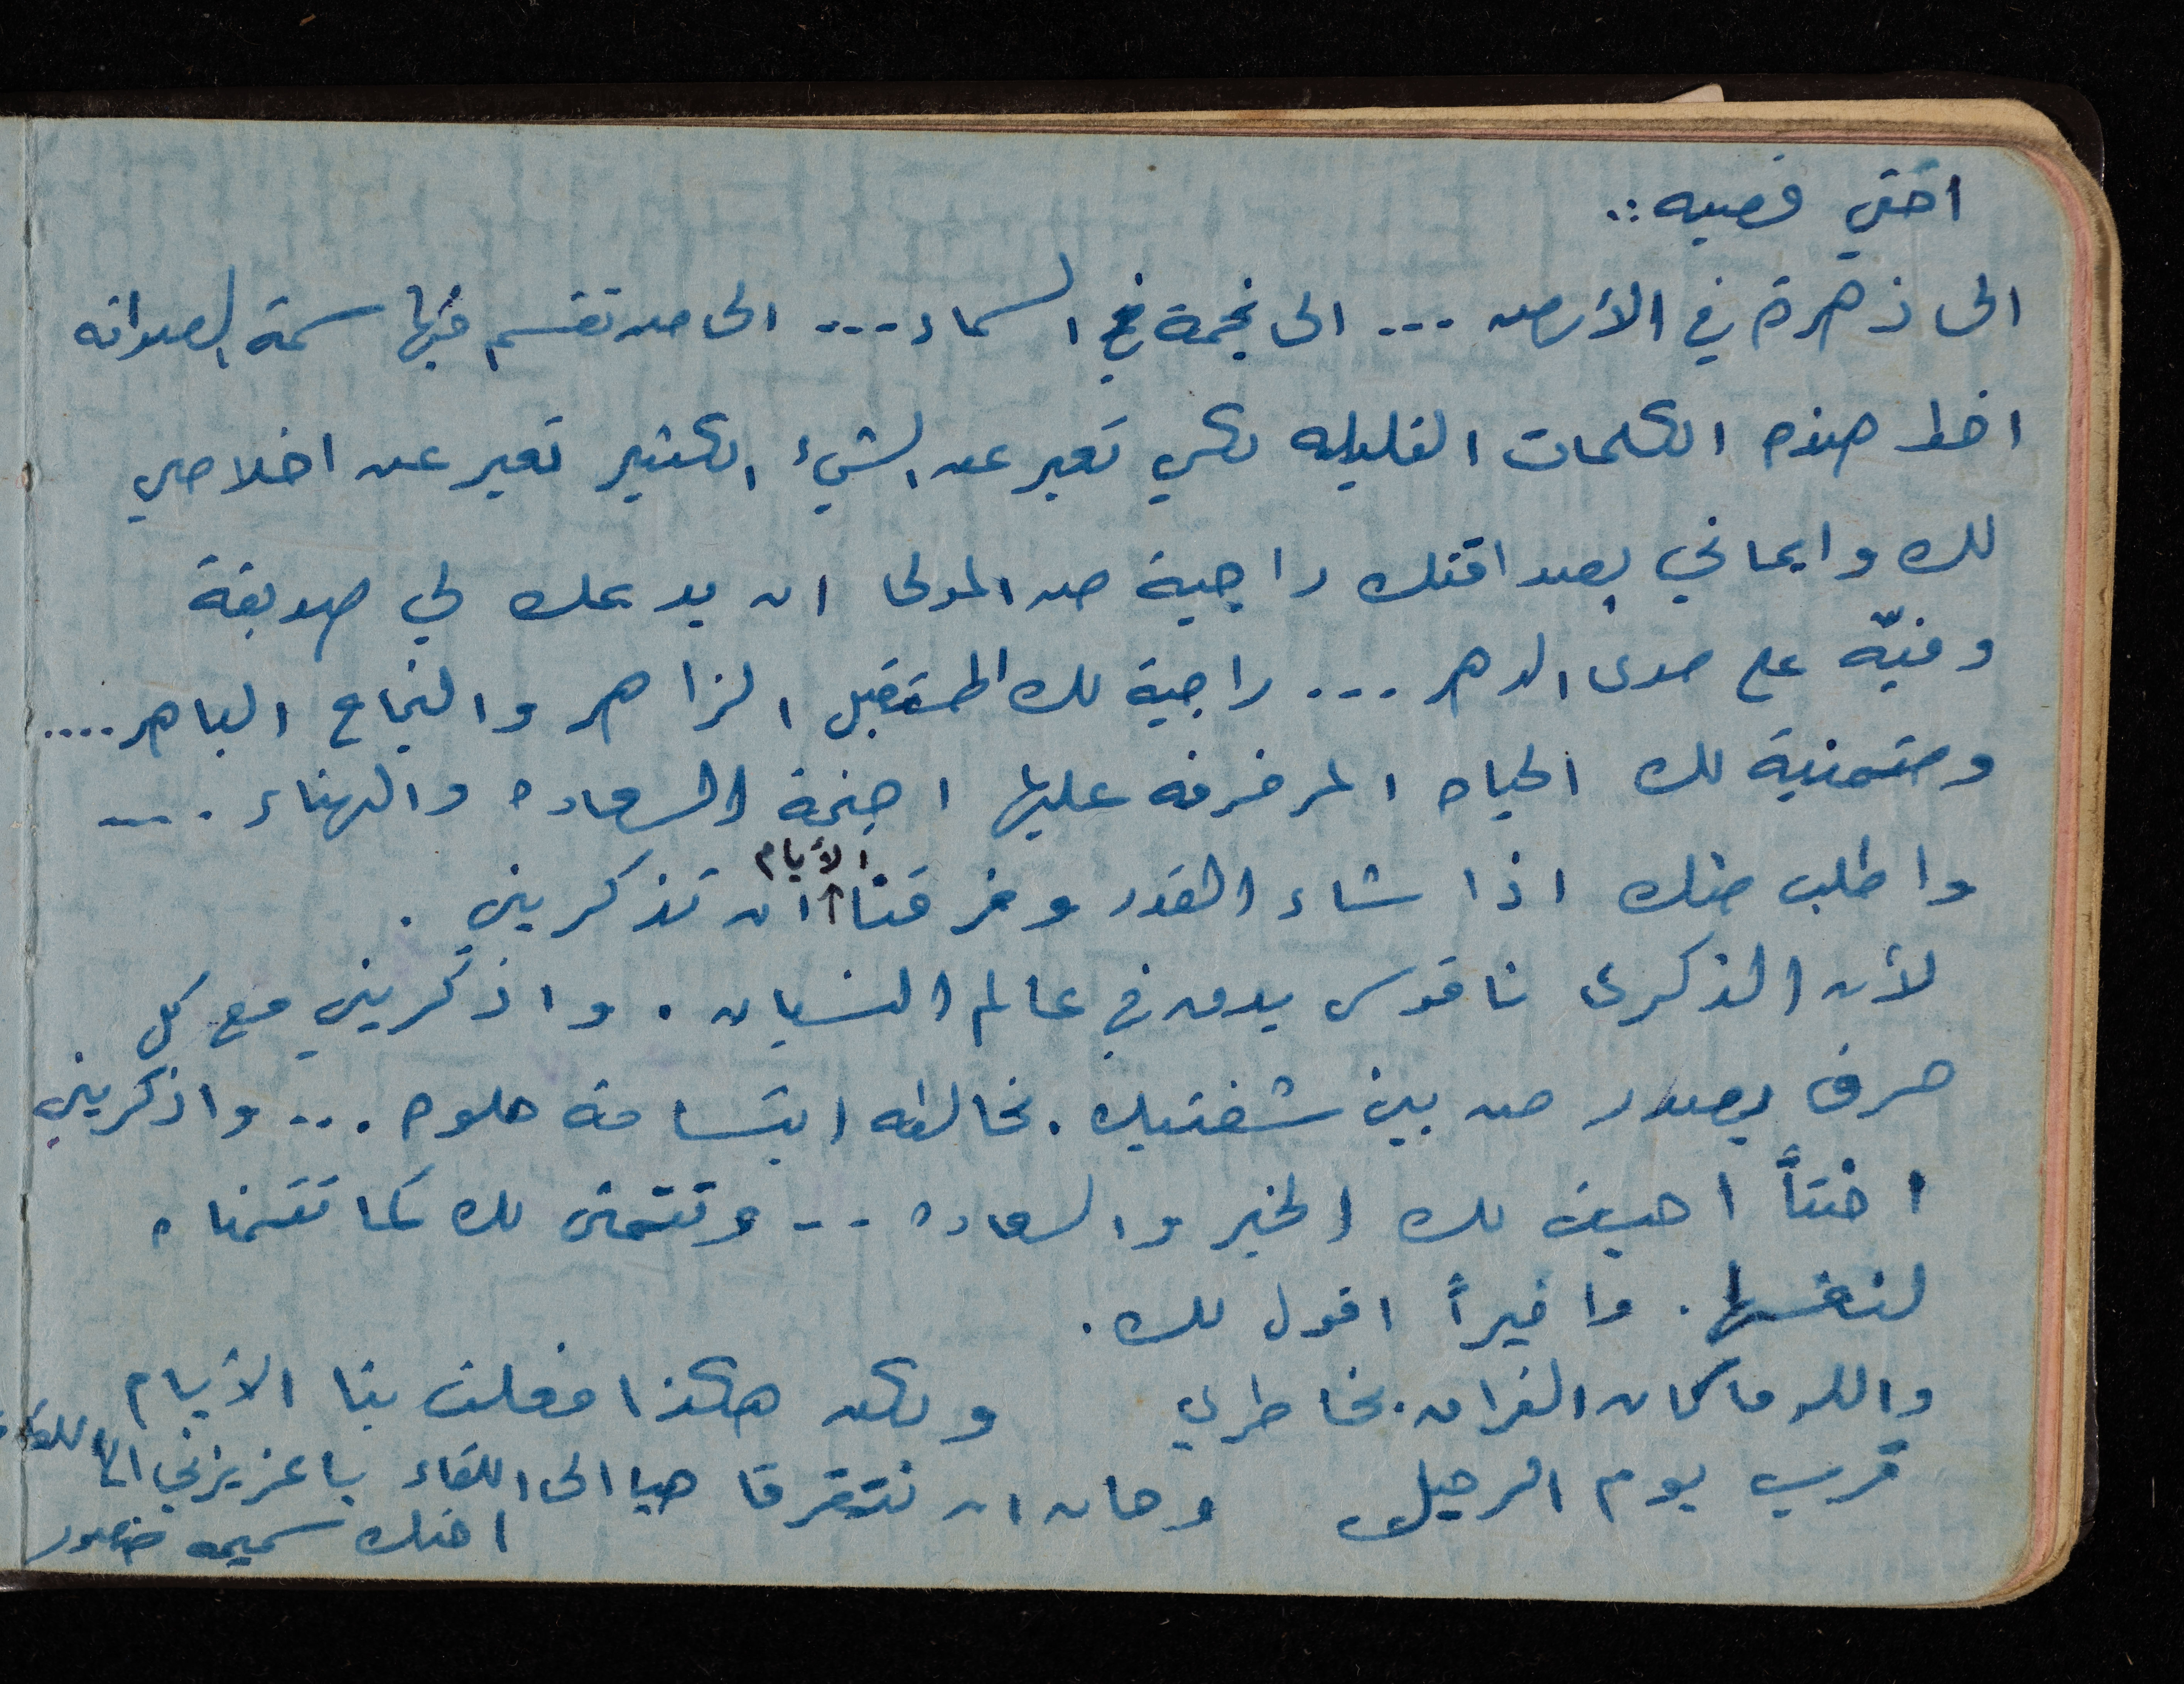 اختي فصيه :..
الى زهرة في الأرض ... الى نجمة في السماء ... الى من تقسم فيها سمة الصداقه
اخط هذه الكلمات القليله لكي تعبر عن الشيء الكثير تعبر عن اخلاصي
لك وايماني بصداقتك راجية من المولى ان يدعك لي صديقة
وفيّه على مدى الدهر ... راجية لك المستقبل الزاهر والنجاح الباهر ....
ومتمنية لك الحياه المرفرفه عليها اجنحة السعاده والهناء . ---
واطلب منك اذا شاء القدر وفرقتنا الأيام ان تذكريني .
لأن الذكرى ناقوس يدق في عالم النسيان . واذكريني مع كل
حرف يصدر من بين شفتيك . تخالطه ابتسامة حلوه ... واذكريني
اختاً احبت لك الخير والسعاده -- وتتمنى لك كما تتمناه
لنفسها . واخيراً اقول لك .
والله ما كان الفراق بخاطري ولكن هكذا فعلت بنا الأيام
قرب يوم الرحيل وحان ان نتفرقا هيا الى اللقاء يا عزيزتي الى اللقاء
اختك سميحه منصور